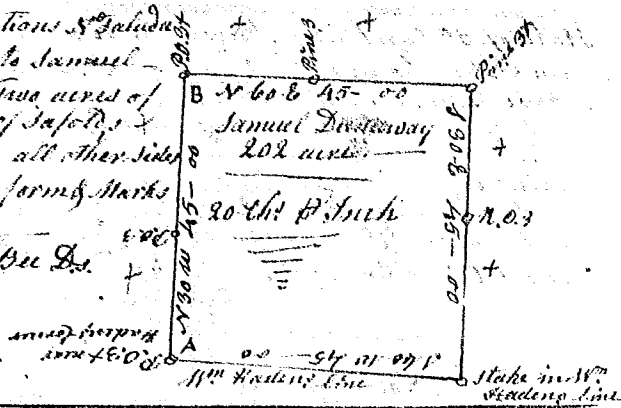 tions N° Saluda
to Samuel
Two acres of
of Safolds
all other sides
form & Marks
Bee D.s.
P.O.3X
Pine 3
Pine 3X
B N 60 E 45-00
Samuel Dedeaway
202 acres
20 Chs. P Inch
S 30 E 45-00
R.O.3
N 30 W 45-00
P.O.3
A
P.O.3X near
corner
S 60 W 45-00
Wm Hadens line
Stake in Wm
Hadens line